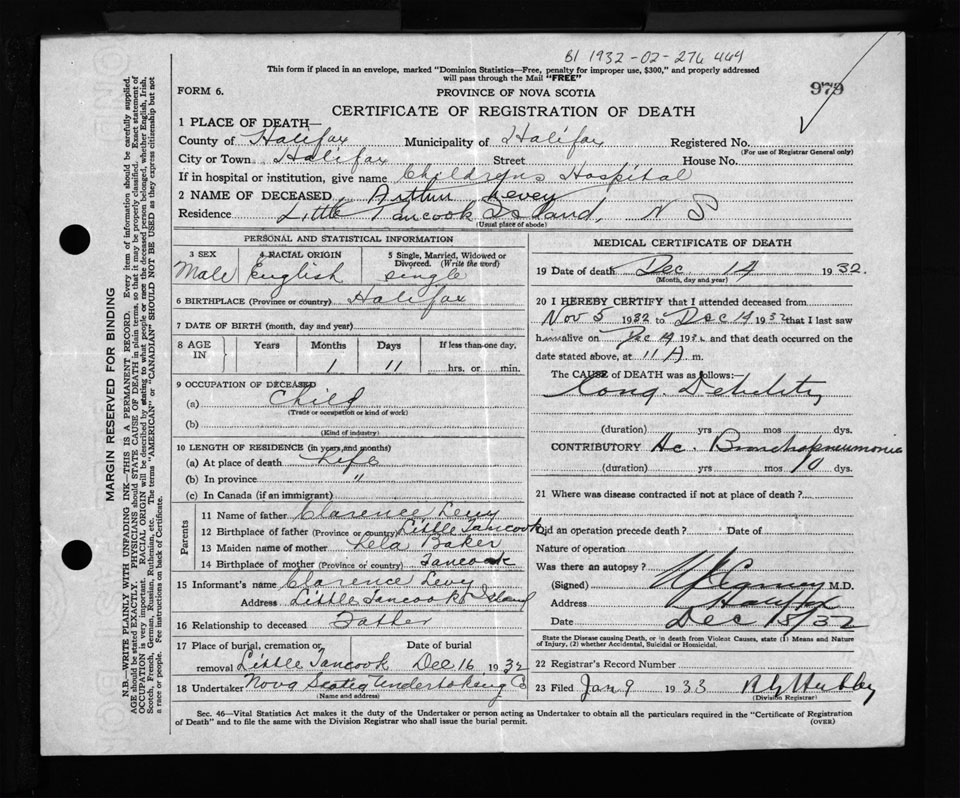 B1 1932-02-276 449
This form if placed in an envelope, marked "Dominion Statistics—Free, penalty for improper use, $300," and properly addressed
will pass through the Mail "FREE"
979
FORM 6.
PROVINCE OF NOVA SCOTIA
CERTIFICATE OF REGISTRATION OF DEATH
1 PLACE OF DEATH—
County of Halifax Municipality of Halifax Registered No.
(For use of Registrar General only)
City or Town Halifax Street House No.
If in hospital or institution, give name Childrens Hospital
2 NAME OF DECEASED Arthur Levey
Residence Little Tancook Island, N S
(Usual place of abode)
PERSONAL AND STATISTICAL INFORMATION
3 SEX 4 RACIAL ORIGIN 5 Single, Married, Widowed or Divorced. (Write the word)
Male English single
6 BIRTHPLACE (Province or country) Halifax
7 DATE OF BIRTH (month, day and year)
8 AGE IN Years Months Days If less than one day,
1 11 hrs. or min.
9 OCCUPATION OF DECEASED
(a) Child
(Trade or occupation or kind of work)
(b)
(Kind of industry)
10 LENGTH OF RESIDENCE (in years and months)
(a) At place of death Life
(b) In province "
(c) In Canada (if an immigrant)
Parents
11 Name of father Clarence Levy
12 Birthplace of father (Province or country) Little Tancook
13 Maiden name of mother Lela Baker
14 Birthplace of mother (Province or country) Tancook
15 Informant's name Clarence Levy
Address Little Tancook Island
16 Relationship to deceased Father
17 Place of burial, cremation or removal Date of burial
Little Tancook Dec 16 1932
18 Undertaker Nova Scotia Undertaking Co
(Name and address)
MEDICAL CERTIFICATE OF DEATH
19 Date of death Dec. 14 1932.
(Month, day and year)
20 I HEREBY CERTIFY that I attended deceased from
Nov 5 1932 to Dec 14 1932 that I last saw
h im alive on Dec 14 1932 and that death occurred on the
date stated above, at 11 A m.
The CAUSE of DEATH was as follows:—
Cong. Debility
(duration) yrs mos dys.
CONTRIBUTORY Ac. Bronchopneumonia
(duration) yrs mos 10 dys.
21 Where was disease contracted if not at place of death?
Did an operation precede death? Date of
Nature of operation
Was there an autopsy?
(Signed) M.D.
Address Halifax
Date Dec 15/32
State the Disease causing Death, or in death from Violent Causes, state (1) Means and Nature
of Injury, (2) whether Accidental, Suicidal or Homicidal.
22 Registrar's Record Number
23 Filed Jan 9 1933
(Division Registrar)
Sec. 46—Vital Statistics Act makes it the duty of the Undertaker or person acting as Undertaker to obtain all the particulars required in the "Certificate of Registration
of Death" and to file the same with the Division Registrar who shall issue the burial permit.
(OVER)
MARGIN RESERVED FOR BINDING
N.B.—WRITE PLAINLY WITH UNFADING INK—THIS IS A PERMANENT RECORD. Every item of information should be carefully supplied.
AGE should be stated EXACTLY. PHYSICIANS should STATE CAUSE OF DEATH in plain terms, so that it may be properly classified. Exact statement of
OCCUPATION is very important. RACIAL ORIGIN will be described by stating to what people or race the deceased person belonged, whether English, Irish,
Scotch, French, German, Russian, Ruthenian, etc. The terms "AMERICAN" or "CANADIAN" SHOULD NOT BE USED as they express citizenship but not
a race or people. Fee instructions on back of Certificate.